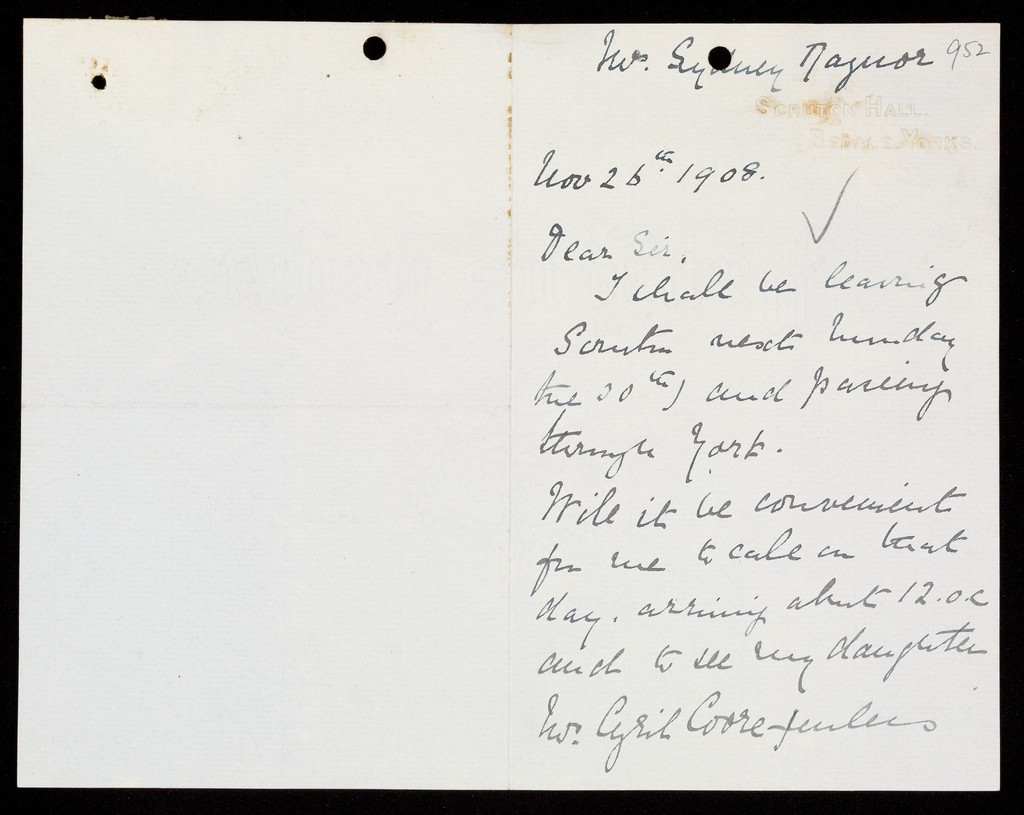 Mrs. Sydney Raynor 952
SCRUTON HALL.
BEDALE. YORKS.
Nov 26th. 1908.
Dear Sir,
I shall be leaving
Scruton next Monday
the 30th, and passing
through York.
Will it be convenient
for me to call on that
day, arriving about 12.o.c
and to see my daughter
Mrs. Cyril Coore-